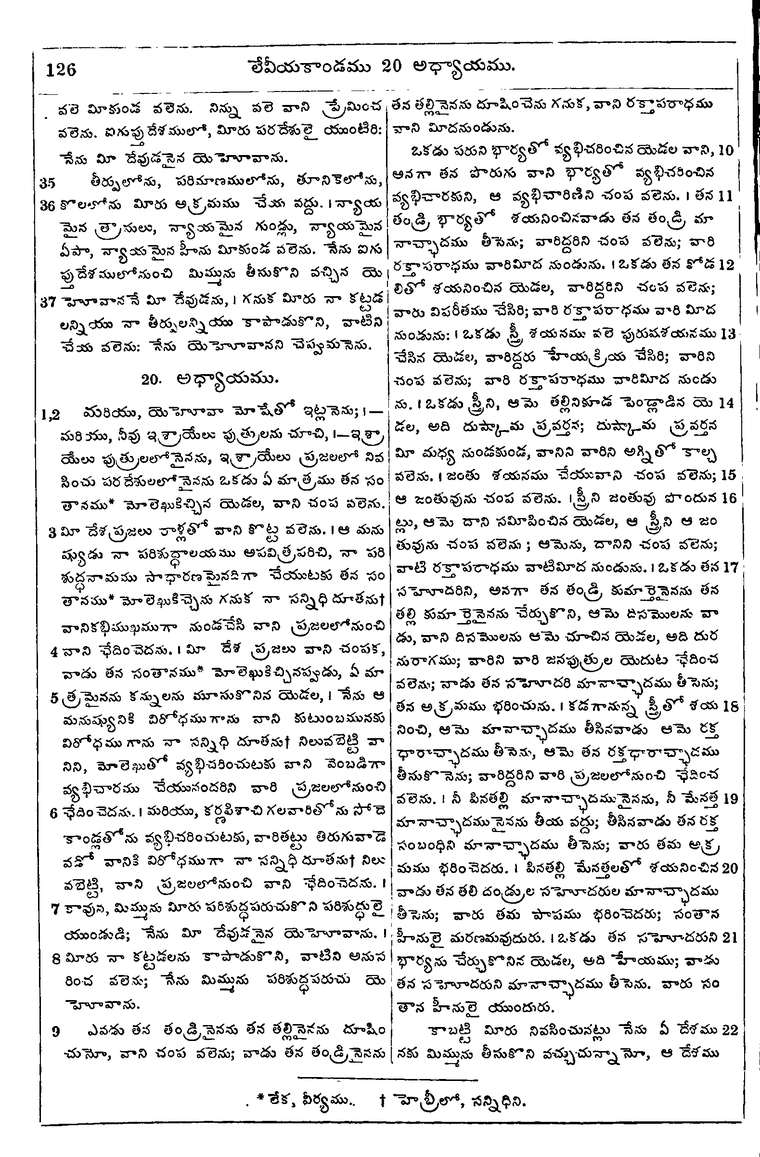 126 లేవీయకాండము 20 అధ్యాయము.
వలె మీకుండ వలెను. నిన్ను వలె వాని ప్రేమించ
వలెను. ఐగుప్తు దేశములో, మీరు పరదేశులై యుంటిరి:
నేను మీ దేవుడనైన యెహోవాను.
35 తీర్పులోను, పరిమాణములోను, తూనికెలోను,
36 కొలలోను మీరు అక్రమము చేయ వద్దు. । న్యాయ
మైన త్రాసులు, న్యాయమైన గుండ్లు, న్యాయమైన
ఏపా, న్యాయమైన హీను మీకుండ వలెను. నేను ఐగు
ప్తుదేశములోనుంచి మిమ్మును తీసుకొని వచ్చిన యె
37 హోవాననే మీ దేవుడను, । గనుక మీరు నా కట్టడ
లన్నియు నా తీర్పులన్నియు కాపాడుకొని, వాటిని
చేయ వలెను: నేను యెహోవానని చెప్పుమనెను.
20. అధ్యాయము.
1,2 మరియు, యెహోవా మోషేతో ఇట్లనెను; ।—
మరియు, నీవు ఇశ్రాయేలు పుత్రులను చూచి, ।—ఇశ్రా
యేలు పుత్రులలోనైనను, ఇశ్రాయేలు ప్రజలలో నివ
సించు పరదేశులలోనైనను ఒకడు ఏ మాత్రము తన సం
తానము* మోలెఖుకిచ్చిన యెడల, వాని చంప వలెను.
3 మీ దేశప్రజలు రాళ్లతో వాని కొట్ట వలెను. । ఆ మను
ష్యుడు నా పరిశుద్ధాలయము అపవిత్రపరచి, నా పరి
శుద్ధనామము సాధారణమైనదిగా చేయుటకు తన సం
తానము* మోలెఖుకిచ్చెను గనుక నా సన్నిధి దూతను†
వానికభిముఖముగా నుండచేసి వాని ప్రజలలోనుంచి
4 వాని ఛేదించెదను. । మీ దేశ ప్రజలు వాని చంపక,
వాడు తన సంతానము* మోలెఖుకిచ్చినప్పుడు, ఏ మా
5 త్రమైనను కన్నులను మూసుకొనిన యెడల, । నేను ఆ
మనుష్యునికి విరోధముగాను వాని కుటుంబమునకు
విరోధముగాను నా సన్నిధి దూతను† నిలువబెట్టి వా
నిని, మోలెఖుతో వ్యభిచరించుటకు వాని వెంబడిగా
వ్యభిచారము చేయునందరిని వారి ప్రజలలోనుంచి
6 ఛేదించెదను. । మరియు, కర్ణపిశాచి గలవారితోను సోదె
కాండ్లతోను వ్యభిచరించుటకు, వారితట్టు తిరుగువాడె
వడో వానికి విరోధముగా నా సన్నిధి దూతను† నిలు
వబెట్టి, వాని ప్రజలలోనుంచి వాని ఛేదించెదను. ।
7 కావున, మిమ్మును మీరు పరిశుద్ధపరుచుకొని పరిశుద్ధులై
యుండుడి; నేను మీ దేవుడనైన యెహోవాను. ।
8 మీరు నా కట్టడలను కాపాడుకొని, వాటిని అనుస
రించ వలెను; నేను మిమ్మును పరిశుద్ధపరుచు యె
హోవాను.
9 ఎవడు తన తండ్రినైనను తన తల్లినైనను దూషిం
చునో, వాని చంప వలెను; వాడు తన తండ్రినైనను
తన తల్లినైనను దూషించెను గనుక, వాని రక్తాపరాధము
వాని మీదనుండును.
ఒకడు పరుని భార్యతో వ్యభిచరించిన యెడల వాని, 10
అనగా తన పొరుగు వాని భార్యతో వ్యభిచరించిన
వ్యభిచారకుని, ఆ వ్యభిచారిణిని చంప వలెను. । తన 11
తండ్రి భార్యతో శయనించినవాడు తన తండ్రి మా
నాచ్ఛాదము తీసెను; వారిద్దరిని చంప వలెను; వారి
రక్తాపరాధము వారిమీద నుండును. । ఒకడు తన కోడ 12
లితో శయనించిన యెడల, వారిద్దరిని చంప వలెను;
వారు విపరీతము చేసిరి; వారి రక్తాపరాధము వారి మీద
నుండును: । ఒకడు స్త్రీ శయనము వలె పురుషశయనము 13
చేసిన యెడల, వారిద్దరు హేయక్రియ చేసిరి; వారిని
చంప వలెను; వారి రక్తాపరాధము వారిమీద నుండు
ను. । ఒకడు స్త్రీని, ఆమె తల్లినికూడ పెండ్లాడిన యె 14
డల, అది దుష్కామ ప్రవర్తన; దుష్కామ ప్రవర్తన
మీ మధ్య నుండకుండ, వానిని వారిని అగ్నితో కాల్చ
వలెను. । జంతు శయనము చేయువాని చంప వలెను; 15
ఆ జంతువును చంప వలెను. । స్త్రీని జంతువు పొందున 16
ట్లు, ఆమె దాని సమీపించిన యెడల, ఆ స్త్రీని ఆ జం
తువును చంప వలెను; ఆమెను, దానిని చంప వలెను;
వాటి రక్తాపరాధము వాటిమీద నుండును. । ఒకడు తన 17
సహోదరిని, అనగా తన తండ్రి, కుమార్తెనైనను తన
తల్లి కుమార్తెనైనను చేర్చుకొని, ఆమె దిసమొలను వా
డు, వాని దిసమొలను ఆమె చూచిన యెడల, అది దుర
నురాగము; వారిని వారి జనపుత్రుల యెదుట ఛేదించ
వలెను; వాడు తన సహోదరి మానాచ్ఛాదము తీసెను;
తన అక్రమము భరించును. । కడగానున్న స్త్రీతో శయ 18
నించి, ఆమె మానాచ్ఛాదము తీసినవాడు ఆమె రక్త
ధారాచ్ఛాదము తీసెను, ఆమె తన రక్తధారాచ్ఛాదము
తీసుకొనెను; వారిద్దరిని వారి ప్రజలలోనుంచి ఛేదించ
వలెను. । నీ పినతల్లి మానాచ్ఛాదమునైనను, నీ మేనత్త 19
మానాచ్ఛాదమునైనను తీయ వద్దు; తీసినవాడు తన రక్త
సంబంధిని మానాచ్ఛాదము తీసెను; వారు తమ అక్ర
మము భరించెదరు. । పినతల్లి మేనత్తలతో శయనించిన 20
వాడు తన తలి దండ్రుల సహోదరుల మానాచ్ఛాదము
తీసెను; వారు తమ పాపము భరించెదరు; సంతాన
హీనులై మరణమవుదురు. । ఒకడు తన సహోదరుని 21
భార్యను చేర్చుకొనిన యెడల, అది హేయము; వాడు
తన సహోదరుని మానాచ్ఛాదము తీసెను. వారు సం
తాన హీనులై యుందురు.
కాబట్టి మీరు నివసించునట్లు నేను ఏ దేశము 22
నకు మిమ్మును తీసుకొని వచ్చుచున్నానో, ఆ దేశము
* లేక, వీర్యము. † హెబ్రీలో, సన్నిధిని.